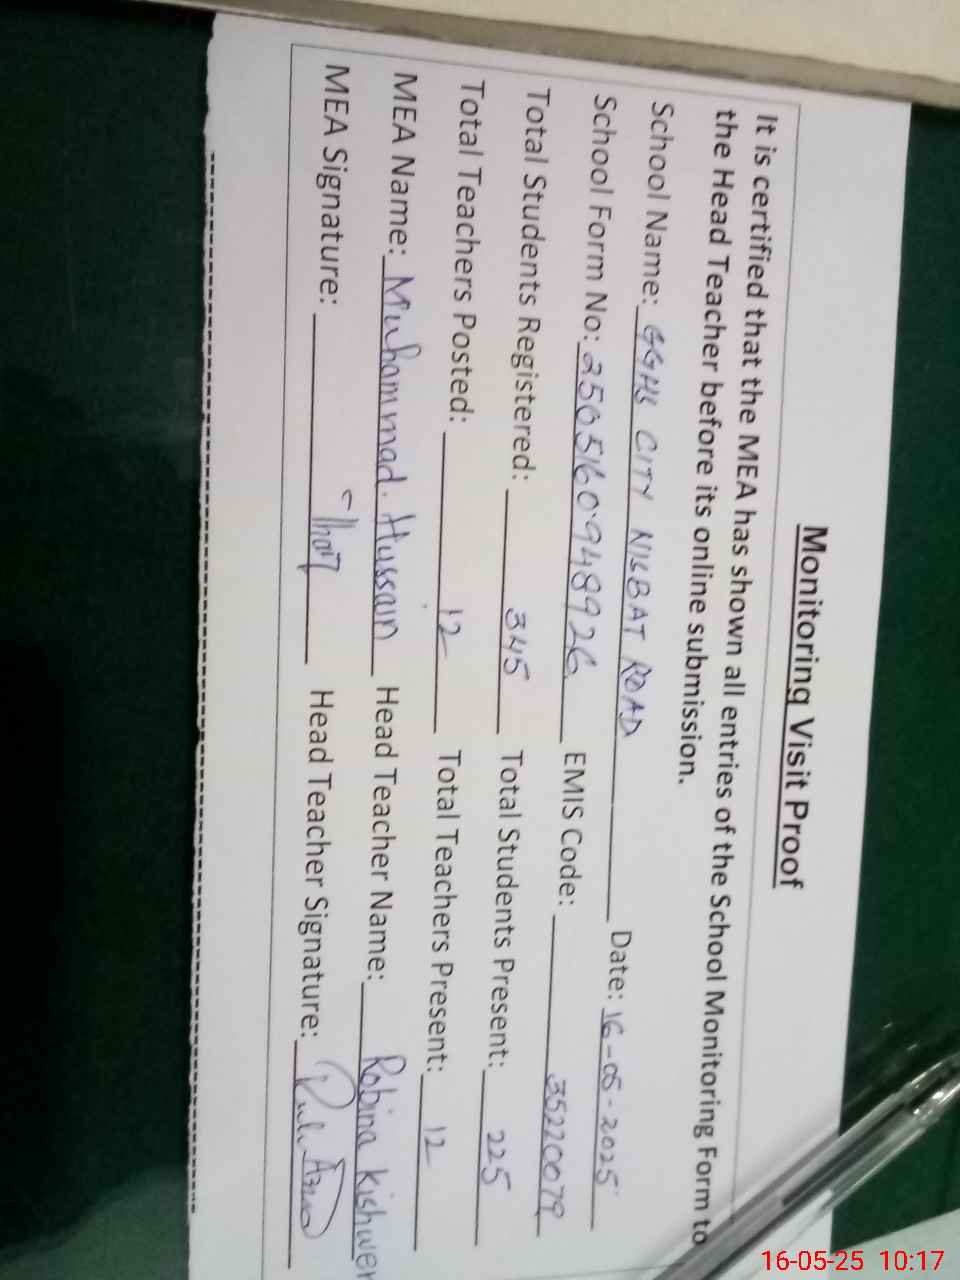 Monitoring Visit Proof
It is certified that the MEA has shown all entries of the School Monitoring Form to
the Head Teacher before its online submission.
School Name: GGHS CITY NISBAT ROAD Date: 16-05-2025
School Form No: 2505160948926 EMIS Code: 35220079
Total Students Registered: 345 Total Students Present: 225
Total Teachers Posted: 12 Total Teachers Present: 12
MEA Name: Muhammad. Hussain Head Teacher Name: Robina Kishwer
MEA Signature: Head Teacher Signature:
16-05-25 10:17